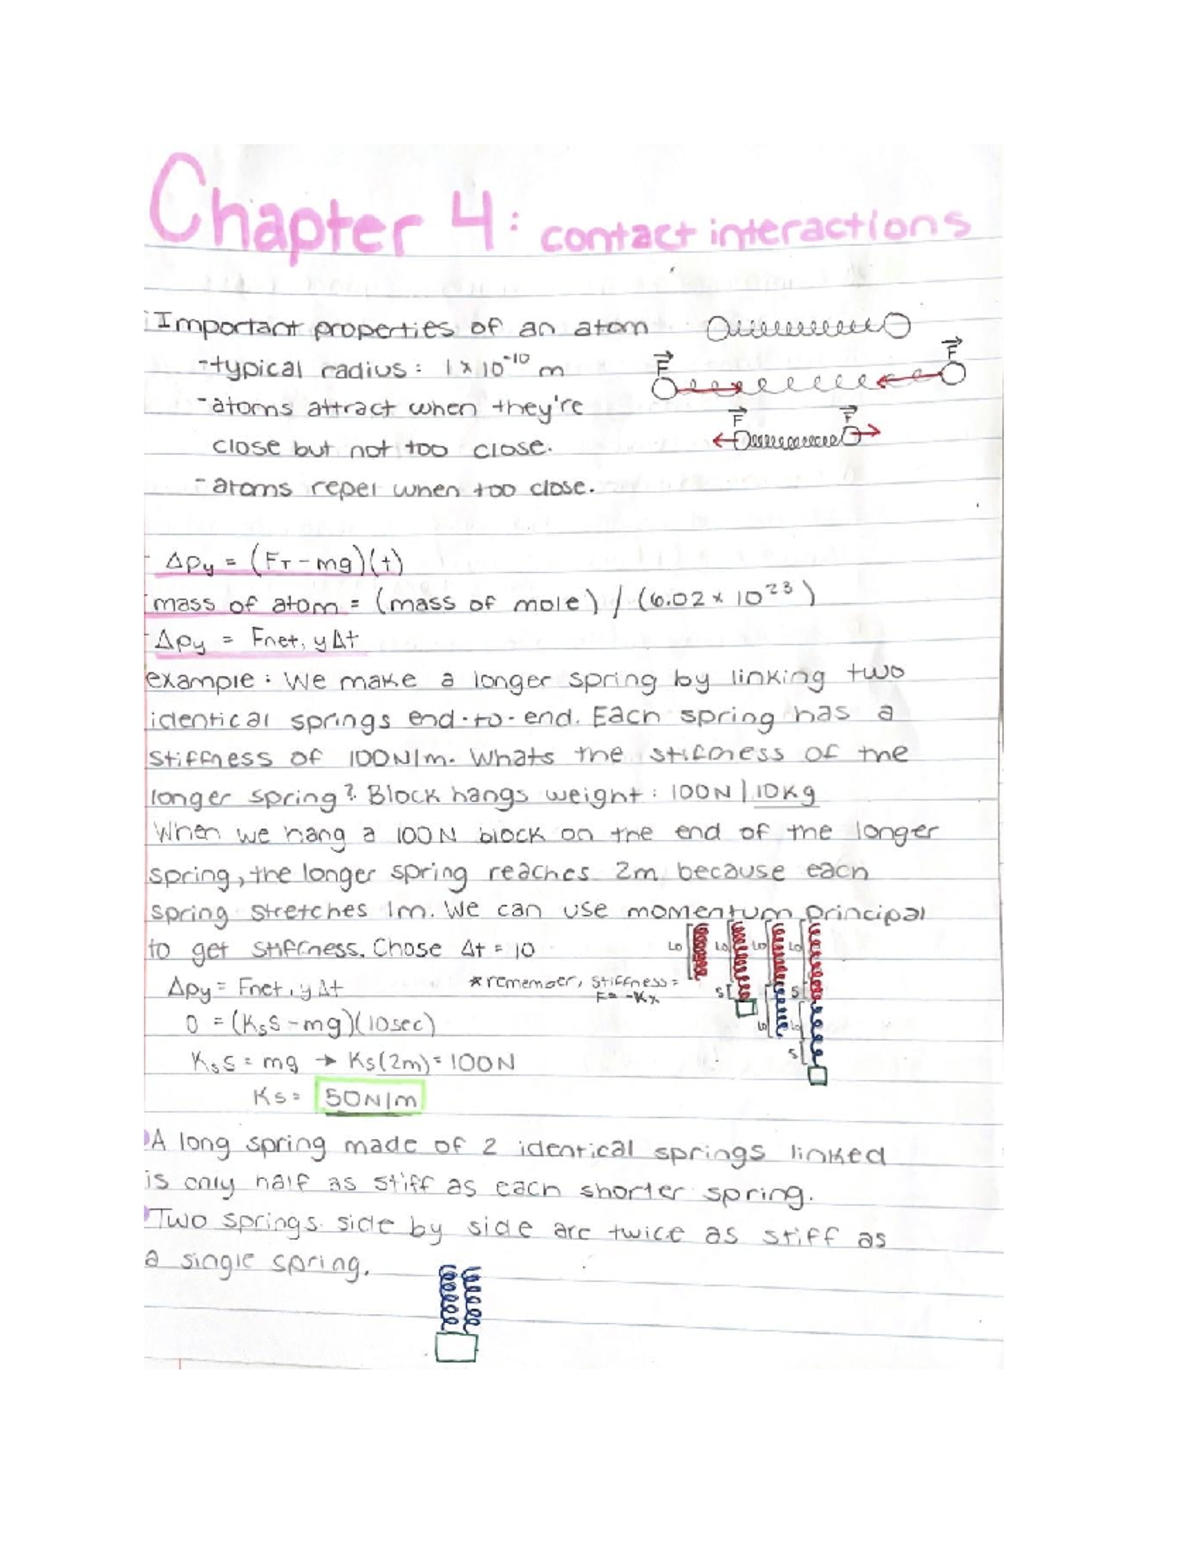 Chapter 4: contact interactions
Important properties of an atom
-typical radius: 1 x 10^-10 m
F⃗
F⃗
-atoms attract when they're
F⃗
F⃗
close but not too close.
-atoms repel when too close.
Δpy = (FT - mg)(t)
mass of atom = (mass of mole) / (6.02 x 10^23)
Δpy = Fnet, yΔt
example: We make a longer spring by linking two
identical springs end-to-end. Each spring has a
stiffness of 100N/m. Whats the stiffness of the
longer spring? Block hangs weight: 100N | 10kg
When we hang a 100N block on the end of the longer
spring, the longer spring reaches 2m because each
spring stretches 1m. We can use momentum principal
to get stiffness. Chose Δt = 10
Lo Lo Lo Lo
Δpy = Fnet, yΔt
*remember, stiffness=
F= -Kx
S S
0 = (KsS - mg)(10sec)
Lo Lo
KsS = mg → Ks(2m) = 100N
S
Ks= 50N/m
A long spring made of 2 identical springs linked
is only half as stiff as each shorter spring.
Two springs side by side are twice as stiff as
a single spring.